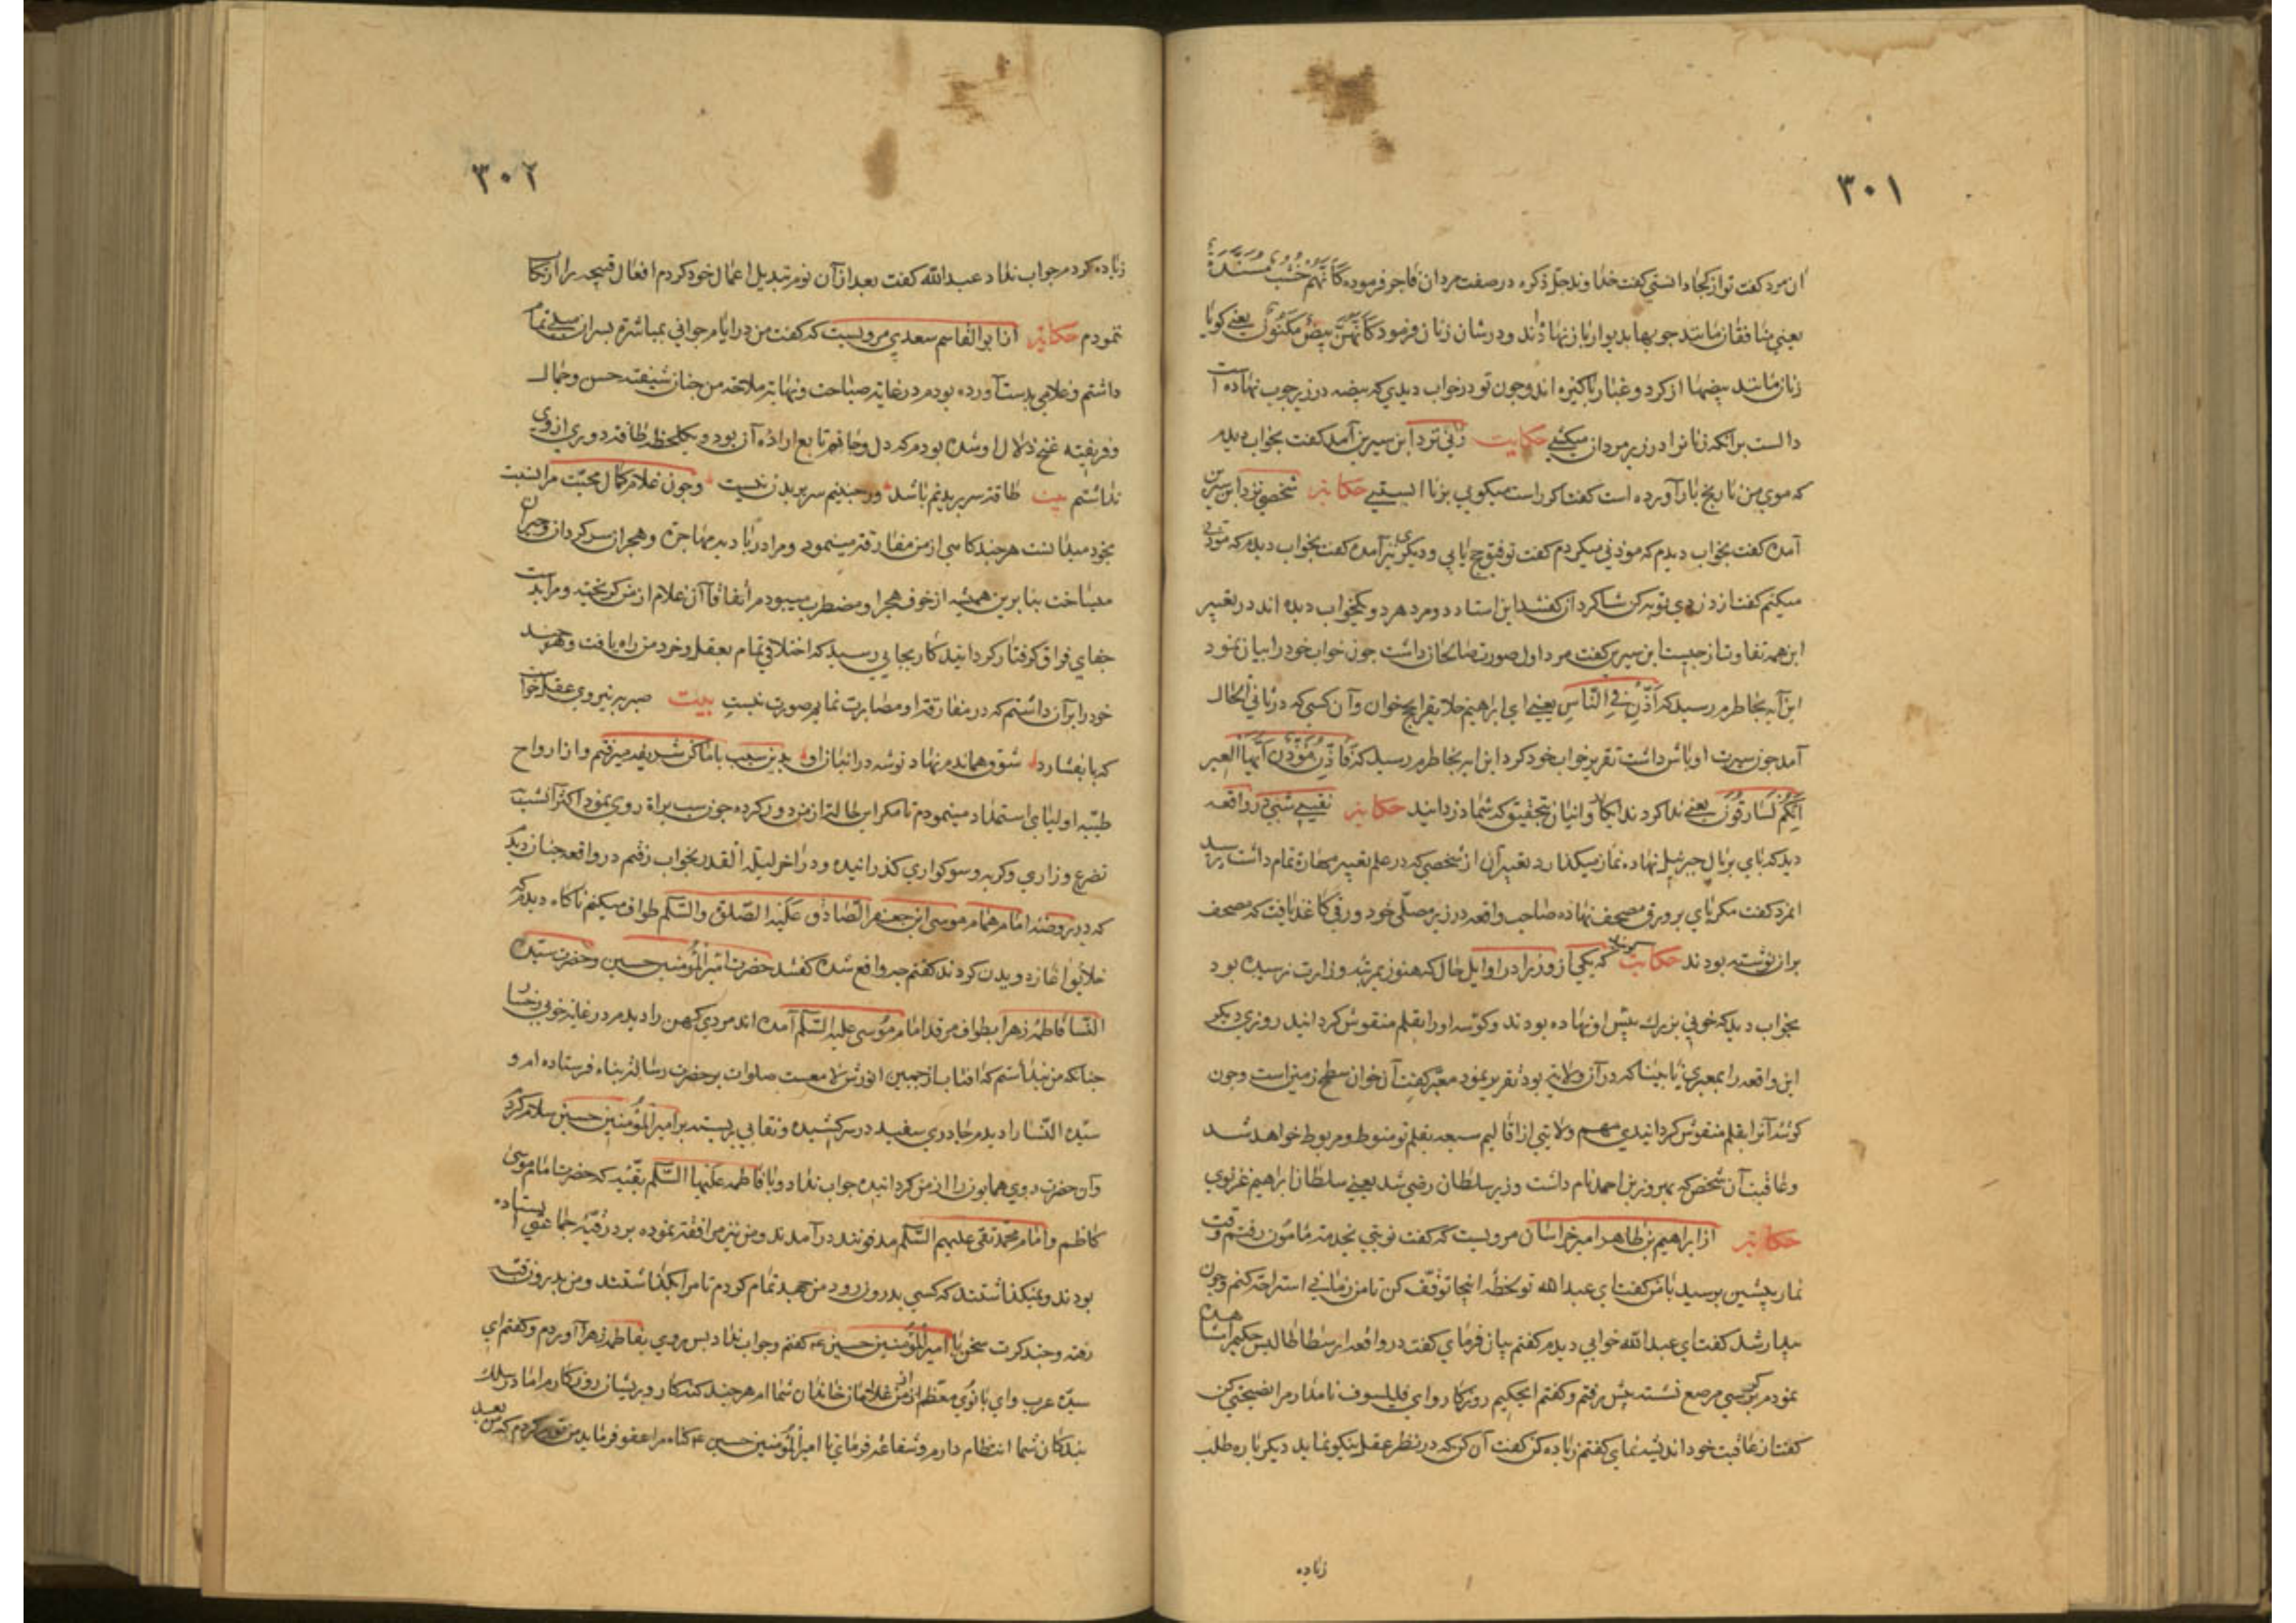 ۳۰۱
آن مرد کفت تو از کجا دانستی کفت خداوند جل ذکره در صفت مردان فاجر فرموده کَأَنَّهُمْ خُشُبٌ مُسَنَّدَةٌ
یعنی منافقان مانند چوبها بدیوار باز نهاده‌اند و در شان زنان فرمود کَأَنَّهُنَّ بَیْضٌ مَکْنُونٌ یعنی کویا
زنان مانند بیضها از کرد و غبار پاکیزه اند و چون تو در خواب دیدی که بیضه در زیر چوب نهاده است
دالست برآنکه زنانرا در زیر مردان میکنی حکایت زنی نزد ابن سیرین آمد کفت بخواب دیدم
که موی من نارنج بار آورده است کفتا کر راست میکویی بزنا حکایة شخصی نزد ابن سیرین
آمده کفت بخواب دیدم که موذنی میکردم کفت توفیق حج یابی و دیکری نیز آمده کفت بخواب دیدم که موذنی
میکنم کفت از دزدی توبه کن شاکردان کفتند این استاد دو مرد هر دو یک خواب دیده اند در تعبیر
این همه تفاوت از چیست ابن سیرین کفت مرد اول صورت صالحان داشت چون خواب خود را بیان نمود
این آیه بخاطرم رسید که أَذِّنْ فِی النَّاسِ یعنی ای ابراهیم خلایق را بحج خوان و آن کسی که در ثانی الحال
آمد چون سیرت اوباش داشت تقریر خواب خود کرد این آیه بخاطرم رسید که فَأَذَّنَ مُؤَذِّنٌ أَیَّتُهَا الْعِیرُ
إِنَّکُمْ لَسَارِقُونَ یعنی ندا کرد ندا که ای کاروانیان بتحقیق که شما دزدانید حکایة نقیبی شبی در واقعه
دید که پای بر بال جبرئیل نهاده نماز میکذارد تعبیر آن از شخصی که در علم تعبیر مهارة تمام داشت پرسید
آنمرد کفت مکر پای بر ورق مصحف نهاده صاحب واقعه در زیر مصلّی خود ورقی کاغذ یافت که مصحف
بر آن نوشته بودند حکایت که یکی از وزرا در اوایل حال که هنوز بمرتبه وزارت نرسیده بود
بخواب دید که خوانی بزرک پیش او نهاده بودند و کوشه او را بقلم منقوش کردانید روزی دیکر
این واقعه را بمعبری نابینا که در آن ولایة بود تقریر نمود معبّر کفت آن خوان سطح زمین است و چون
کوشه آنرا بقلم منقوش کردانیدی مهم ولایتی از اقالیم سبعه بقلم تو منوط و مربوط خواهد شد
و عاقبت آن شخص که بهروز بن احمد نام داشت وزیر سلطان رضی شد یعنی سلطان ابراهیم غزنوی
حکایة از ابراهیم بن طاهر امیر خراسان مرویست که کفت نوبتی بخدمة مأمون رفتم وقت
نماز پیشین برسید با من کفت ای عبدالله تو لحظه اینجا توقّف کن تا من زمانی استراحة کنم و چون
بیدار شد کفت ای عبدالله خوابی دیدم کفتم بیان فرمای کفت در واقعه ارسطاطالیس حکیم را مشاهده
نمودم بر کرسی مرصع نشسته پیش رفتم و کفتم ای حکیم روزکار و ای فیلسوف نامدار مرا نصیحتی کن
کفت از عاقبت خود اندیشه نمای کفتم زیاده کن کفت آن کن که در نظر عقل نیکو نماید دیکر باره طلب
زیاده
۳۰۲
زیاده کردم جواب نداد عبدالله کفت بعد از آن نوم تبدیل اعمال خود کردم افعال قبیحه را ارتکاب
ننمودم حکایة از ابوالقاسم سعدی مرویست که کفت من در ایام جوانی بمباشرة پسران میلی تمام
داشتم و غلامی بدست آورده بودم در غایة صباحت و نهایة ملاحة من چنان شیفته حسن و جمال
و فریفته غنج و دلال او شده بودم که دل و جانم تابع اراده آن بود و یکلحظه طاقة دوری از وی
نداشتم بیت طاقة سر بریدنم باشد ور حبیبم سر بریدن نیست و چون غلام کمال محبّت مرا نسبت
بخود میدانست هر چند کاهی از من مفارقة مینمود و مرا در بادیه مهاجرة و هجران سرکردان و حیران
میساخت بنا برین همیشه از خوف هجر او مضطرب میبودم اتفاقا آن غلام از من کریخته و مرا بدست
جفای فراق کرفتار کردانید کار بجایی رسید که اختلالی تمام بعقل و خرد من راه یافت و هر چند
خود را بر آن داشتم که در مفارقة او مصابرت نمایم صورت نبست بیت صبر به نیروی عقل خواست
که پا بفشارد شوق همانم نهاد نوشه در انبان او بدین سبب باماکن شریفه میرفتم و از ارواح
طیّبه اولیای استمداد مینمودم تا مکر این حالة از من دور کرده چون شب براة روی نمود اکثر آنشب
تضرع و زاری و کریه و سوکواری کذرانیده و در آخر لیلة القدر بخواب رفتم در واقعه چنان دیدم
که در روضه امام همام موسی ابن جعفر الصّادق عَلَیْهِ الصّلوة والسّلم طواف میکنم ناکاه دیدم که
خلایق آغاز دویدن کردند کفتم چه واقع شده کفتند حضرت امیرالمُؤمنین حسین و حضرت سیّدة
النّسا فاطمهٔ زهرا بطواف مرقد امام مُوسی علیه السّلم آمده اند مردی کهن را دیدم در غایة خوبی رخسار
چنانکه من پنداشتم که آفتاب از جبین انورش لامعست صلوات بر حضرت رسالة پناه فرستاده ام و
سیّدة النّسا را دیدم چادری سفید در سر کشیده و نقابی بر بسته بر امیرالمُؤمنین حسین سلام کردم
و آن حضرت روی همایون را از من کردانیده جواب نداد و با فاطمه علیها السّلم بقبّه که حضرت امام موسی
کاظم و امام محمّد تقی علیهم السّلم مدفونند در آمدند و من نیز مرافقة نموده بر در قبّه جماعتی ایستاده
بودند و نمیکذاشتند که کسی بدرون رود من جهد تمام کردم تا مرا بکذاشتند و من بدرون قبّه
رفته و چند کرت سخن با امیرالمُؤمنین حسین ع کفتم و جواب نداد پس روی بفاطمه زهرا آوردم و کفتم ای
سیّده عرب و ای بانوی معظّم من از غلامان خاندان شما ام هر چند کنه کار و پریشان روزکارم اما در سلک
بندکان شما انتظام دارم و شفاعة فرمای تا امیرالمُؤمنین حسین ع کناه مرا عفو فرماید من توبه کردم که من بعد